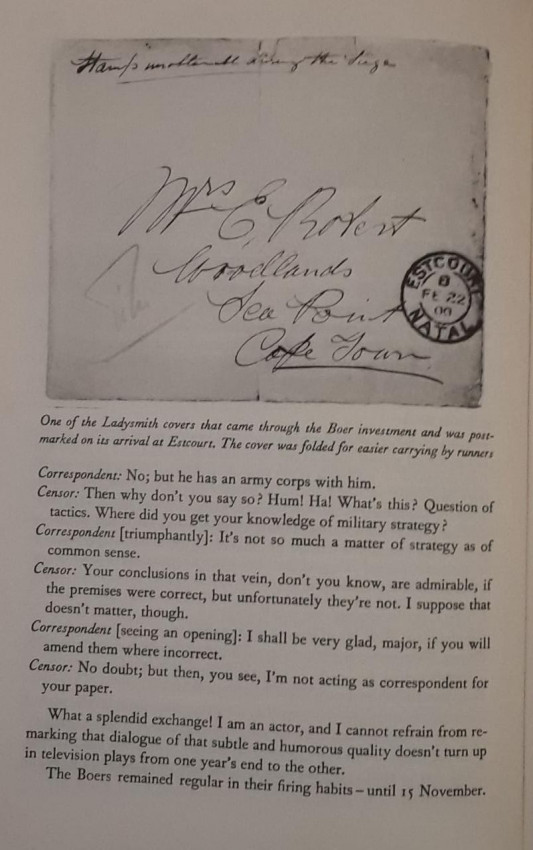 Stamps unobtainable during the Siege
Mrs E. Robert
Woodlands
Sea Point
Cape Town
ESTCOURT
8
FE 22
00
NATAL
One of the Ladysmith covers that came through the Boer investment and was post-
marked on its arrival at Estcourt. The cover was folded for easier carrying by runners
Correspondent: No; but he has an army corps with him.
Censor: Then why don't you say so? Hum! Ha! What's this? Question of
tactics. Where did you get your knowledge of military strategy?
Correspondent [triumphantly]: It's not so much a matter of strategy as of
common sense.
Censor: Your conclusions in that vein, don't you know, are admirable, if
the premises were correct, but unfortunately they're not. I suppose that
doesn't matter, though.
Correspondent [seeing an opening]: I shall be very glad, major, if you will
amend them where incorrect.
Censor: No doubt; but then, you see, I'm not acting as correspondent for
your paper.
What a splendid exchange! I am an actor, and I cannot refrain from re-
marking that dialogue of that subtle and humorous quality doesn't turn up
in television plays from one year's end to the other.
The Boers remained regular in their firing habits – until 15 November.